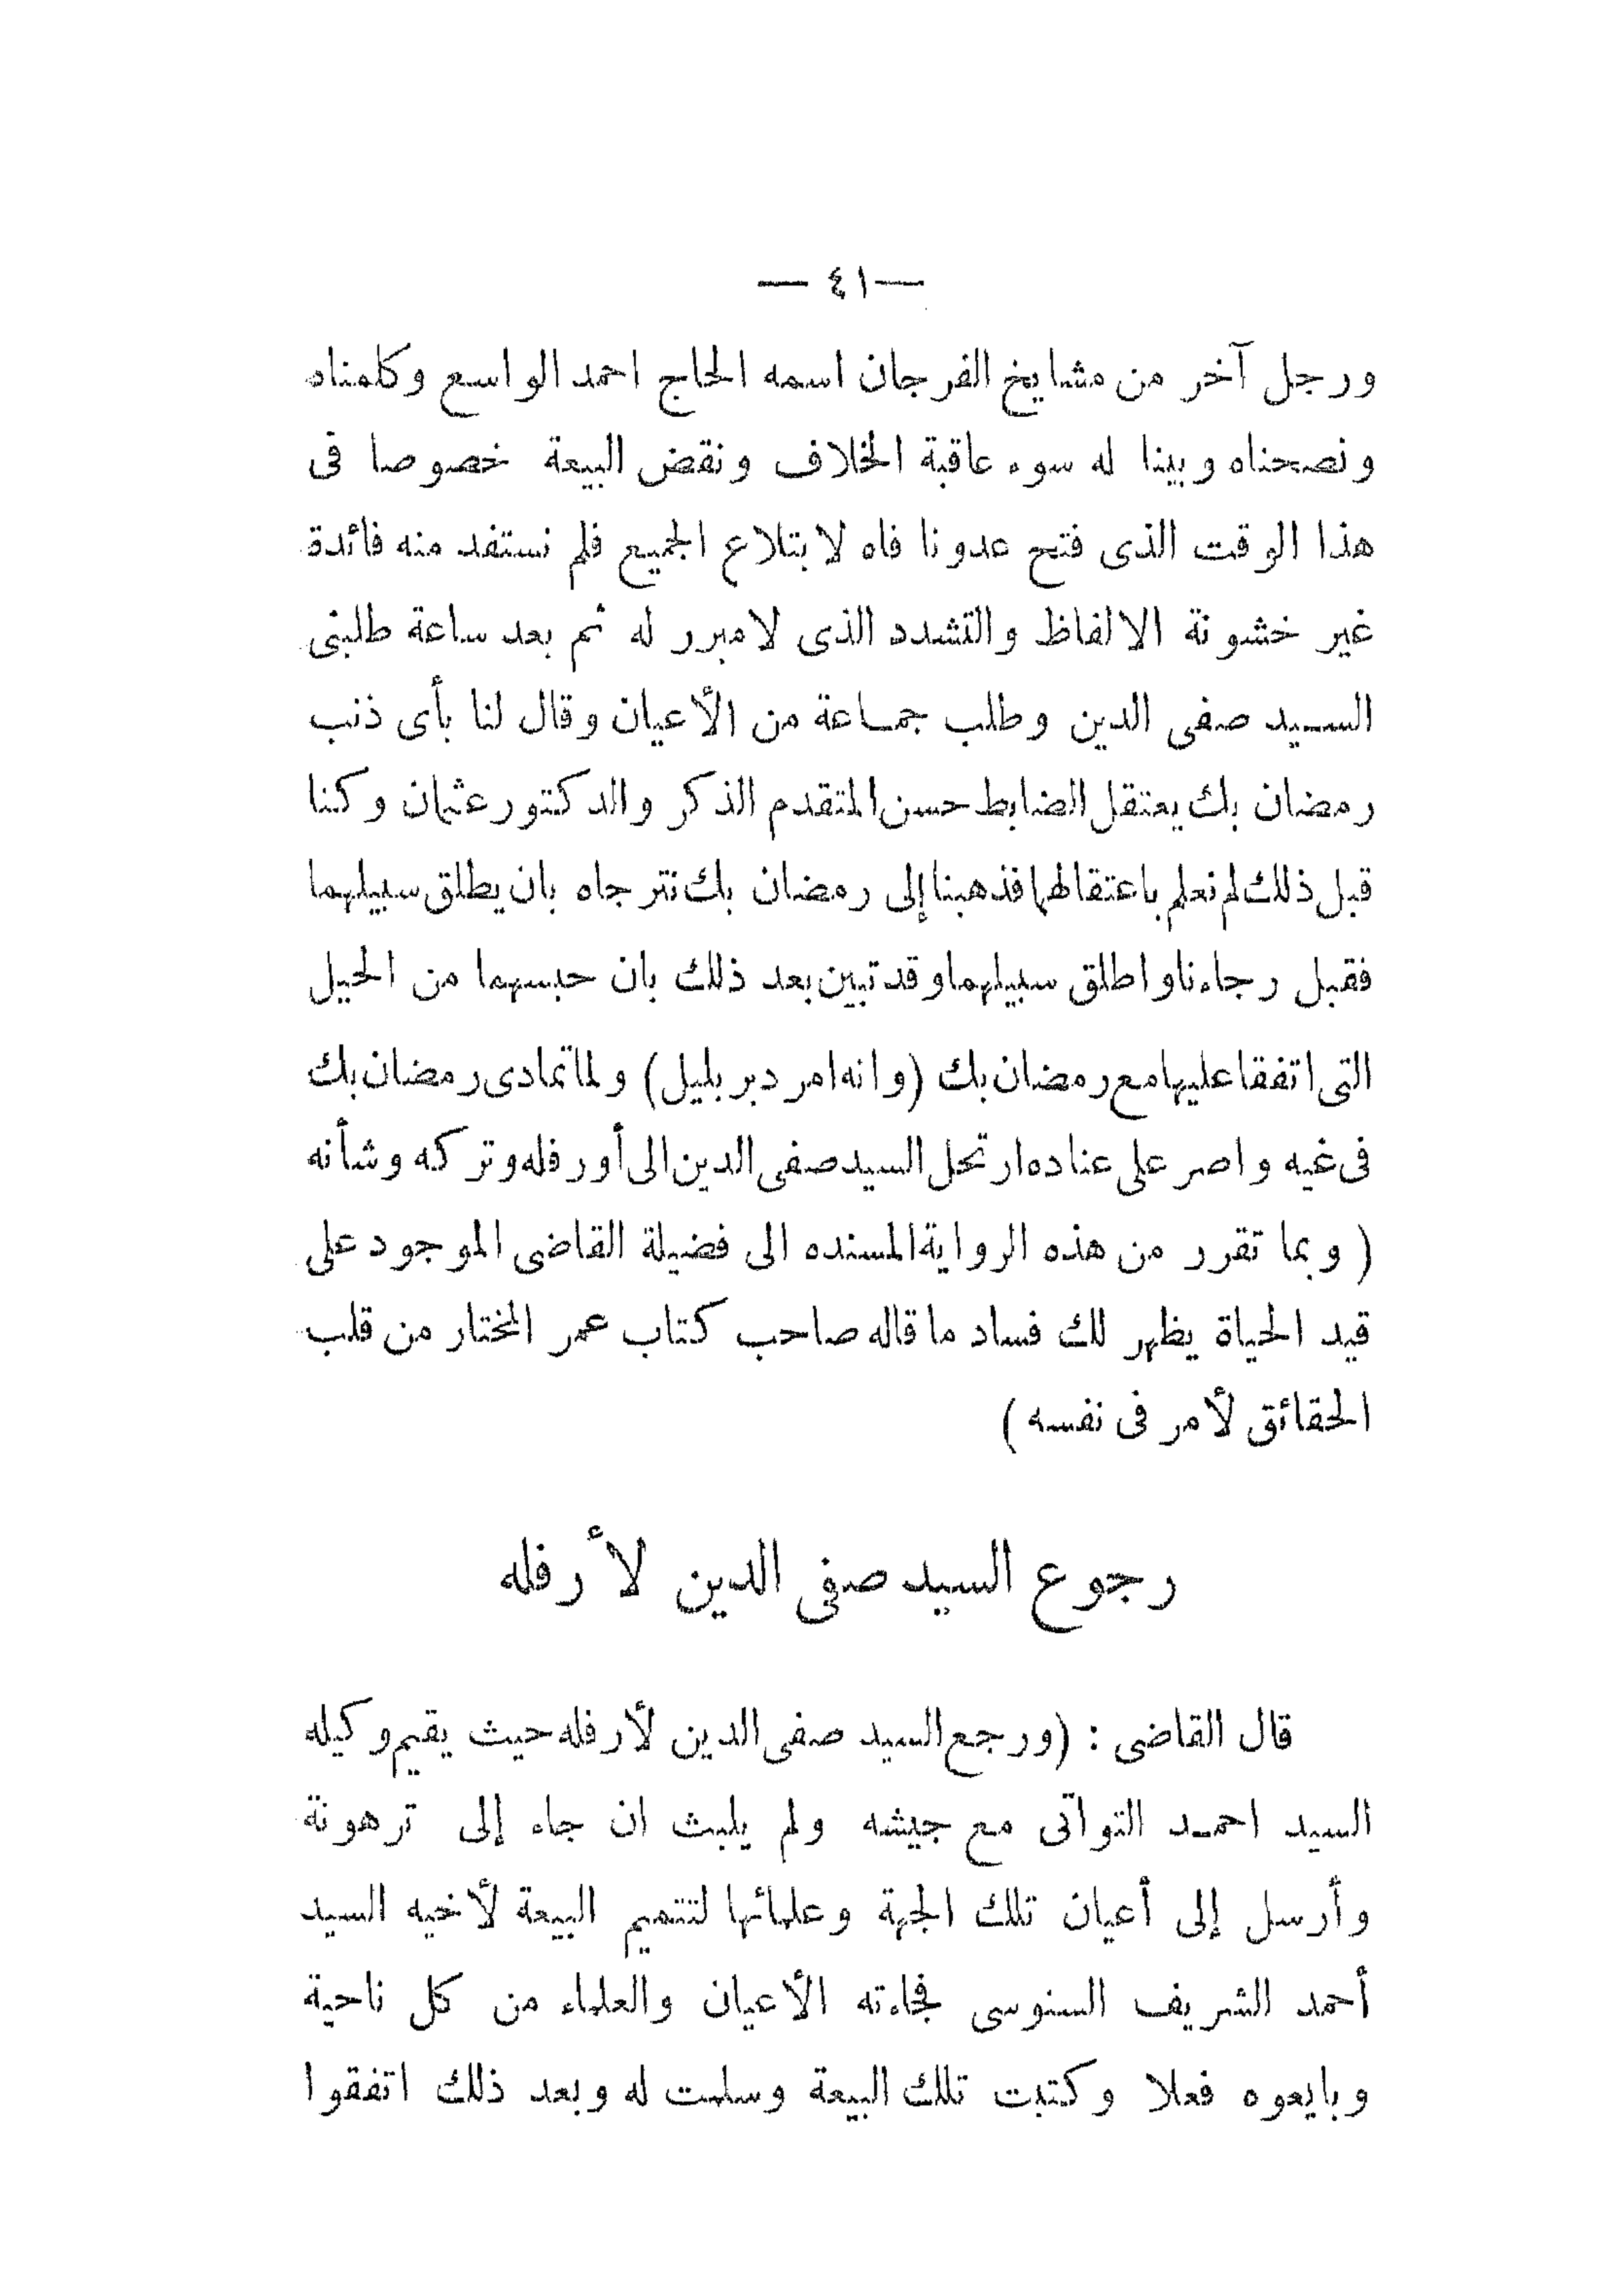 — ٤١ —
ورجل آخر من مشايخ الفرجان اسمه الحاج احمد الواسع وكلمناه
ونصحناه وبينا له سوء عاقبة الخلاف ونقض البيعة خصوصا فى
هذا الوقت الذى فتح عدونا فاه لابتلاع الجميع فلم نستفد منه فائدة
غير خشونة الالفاظ والتشدد الذى لامبرر له ثم بعد ساعة طلبنى
السيد صفى الدين وطلب جماعة من الأعيان وقال لنا بأى ذنب
رمضان بك يعتقل الضابط حسن المتقدم الذكر والدكتور عثمان وكنا
قبل ذلك لم نعلم باعتقالهما فذهبنا إلى رمضان بك نترجاه بان يطلق سبيلهما
فقبل رجاءنا واطلق سبيلهما وقد تبين بعد ذلك بان حبسهما من الحيل
التى اتفقا عليها مع رمضان بك (وانه امر دبر بليل) ولما تمادى رمضان بك
فى غيه واصر على عناده ارتحل السيد صفى الدين الى أورفله وتركه وشأنه
(وبما تقرر من هذه الرواية المسنده الى فضيلة القاضى الموجود على
قيد الحياة يظهر لك فساد ما قاله صاحب كتاب عمر المختار من قلب
الحقائق لأمر فى نفسه)
رجوع السيد صفى الدين لأرفله
قال القاضى : (ورجع السيد صفى الدين لأرفله حيث يقيم وكيله
السيد احمد التواتى مع جيشه ولم يلبث ان جاء إلى ترهونة
وأرسل إلى أعيان تلك الجهة وعلمائها لتتميم البيعة لأخيه السيد
أحمد الشريف السنوسى فجاءته الأعيان والعلماء من كل ناحية
وبايعوه فعلا وكتبت تلك البيعة وسلمت له وبعد ذلك اتفقوا